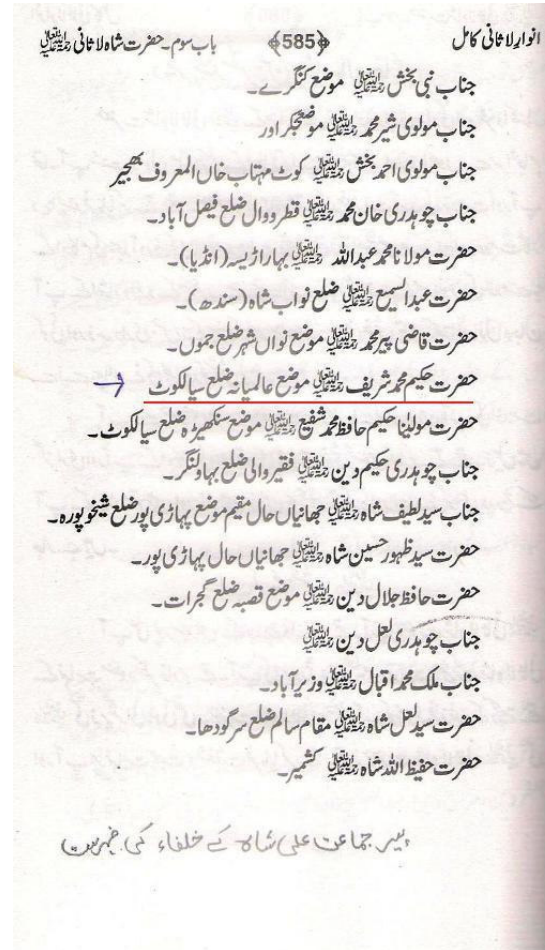 انوارِ لاثانی کامل ﴿585﴾ باب سوم۔ حضرت شاہ لاثانی رحمۃ اللہ علیہ
جناب نبی بخش رحمۃ اللہ علیہ موضع کنگرے۔
جناب مولوی شیر محمد رحمۃ اللہ علیہ موضع
جناب مولوی احمد بخش رحمۃ اللہ علیہ کوٹ مہتاب خاں المعروف بھجیر
جناب چوہدری خان محمد رحمۃ اللہ علیہ قطرووال ضلع فیصل آباد۔
حضرت مولانا محمد عبداللہ رحمۃ اللہ علیہ بہار اڑیسہ (انڈیا)۔
حضرت عبدالسمیع رحمۃ اللہ علیہ ضلع نواب شاہ (سندھ)۔
حضرت قاضی پیر محمد رحمۃ اللہ علیہ موضع نواں شہر ضلع جموں۔
حضرت حکیم محمد شریف رحمۃ اللہ علیہ موضع عالمیانہ ضلع سیالکوٹ
حضرت مولینا حکیم حافظ محمد شفیع رحمۃ اللہ علیہ موضع سنکھیڑہ ضلع سیالکوٹ۔
جناب چوہدری حکیم دین رحمۃ اللہ علیہ فقیر والی ضلع بہاولنگر۔
جناب سید لطیف شاہ رحمۃ اللہ علیہ جھانیاں حال مقیم موضع پہاڑی پور ضلع شیخوپورہ۔
حضرت سید ظہور حسین شاہ رحمۃ اللہ علیہ جھانیاں حال پہاڑی پور۔
حضرت حافظ جلال دین رحمۃ اللہ علیہ موضع قصبہ ضلع گجرات۔
جناب چوہدری لعل دین رحمۃ اللہ علیہ
جناب ملک محمد اقبال رحمۃ اللہ علیہ وزیر آباد۔
حضرت سید لعل شاہ رحمۃ اللہ علیہ مقام سالم ضلع سرگودھا۔
حضرت حفیظ اللہ شاہ رحمۃ اللہ علیہ کشمیر۔
پیر جماعت علی شاہ کے خلفاء کی فہرست